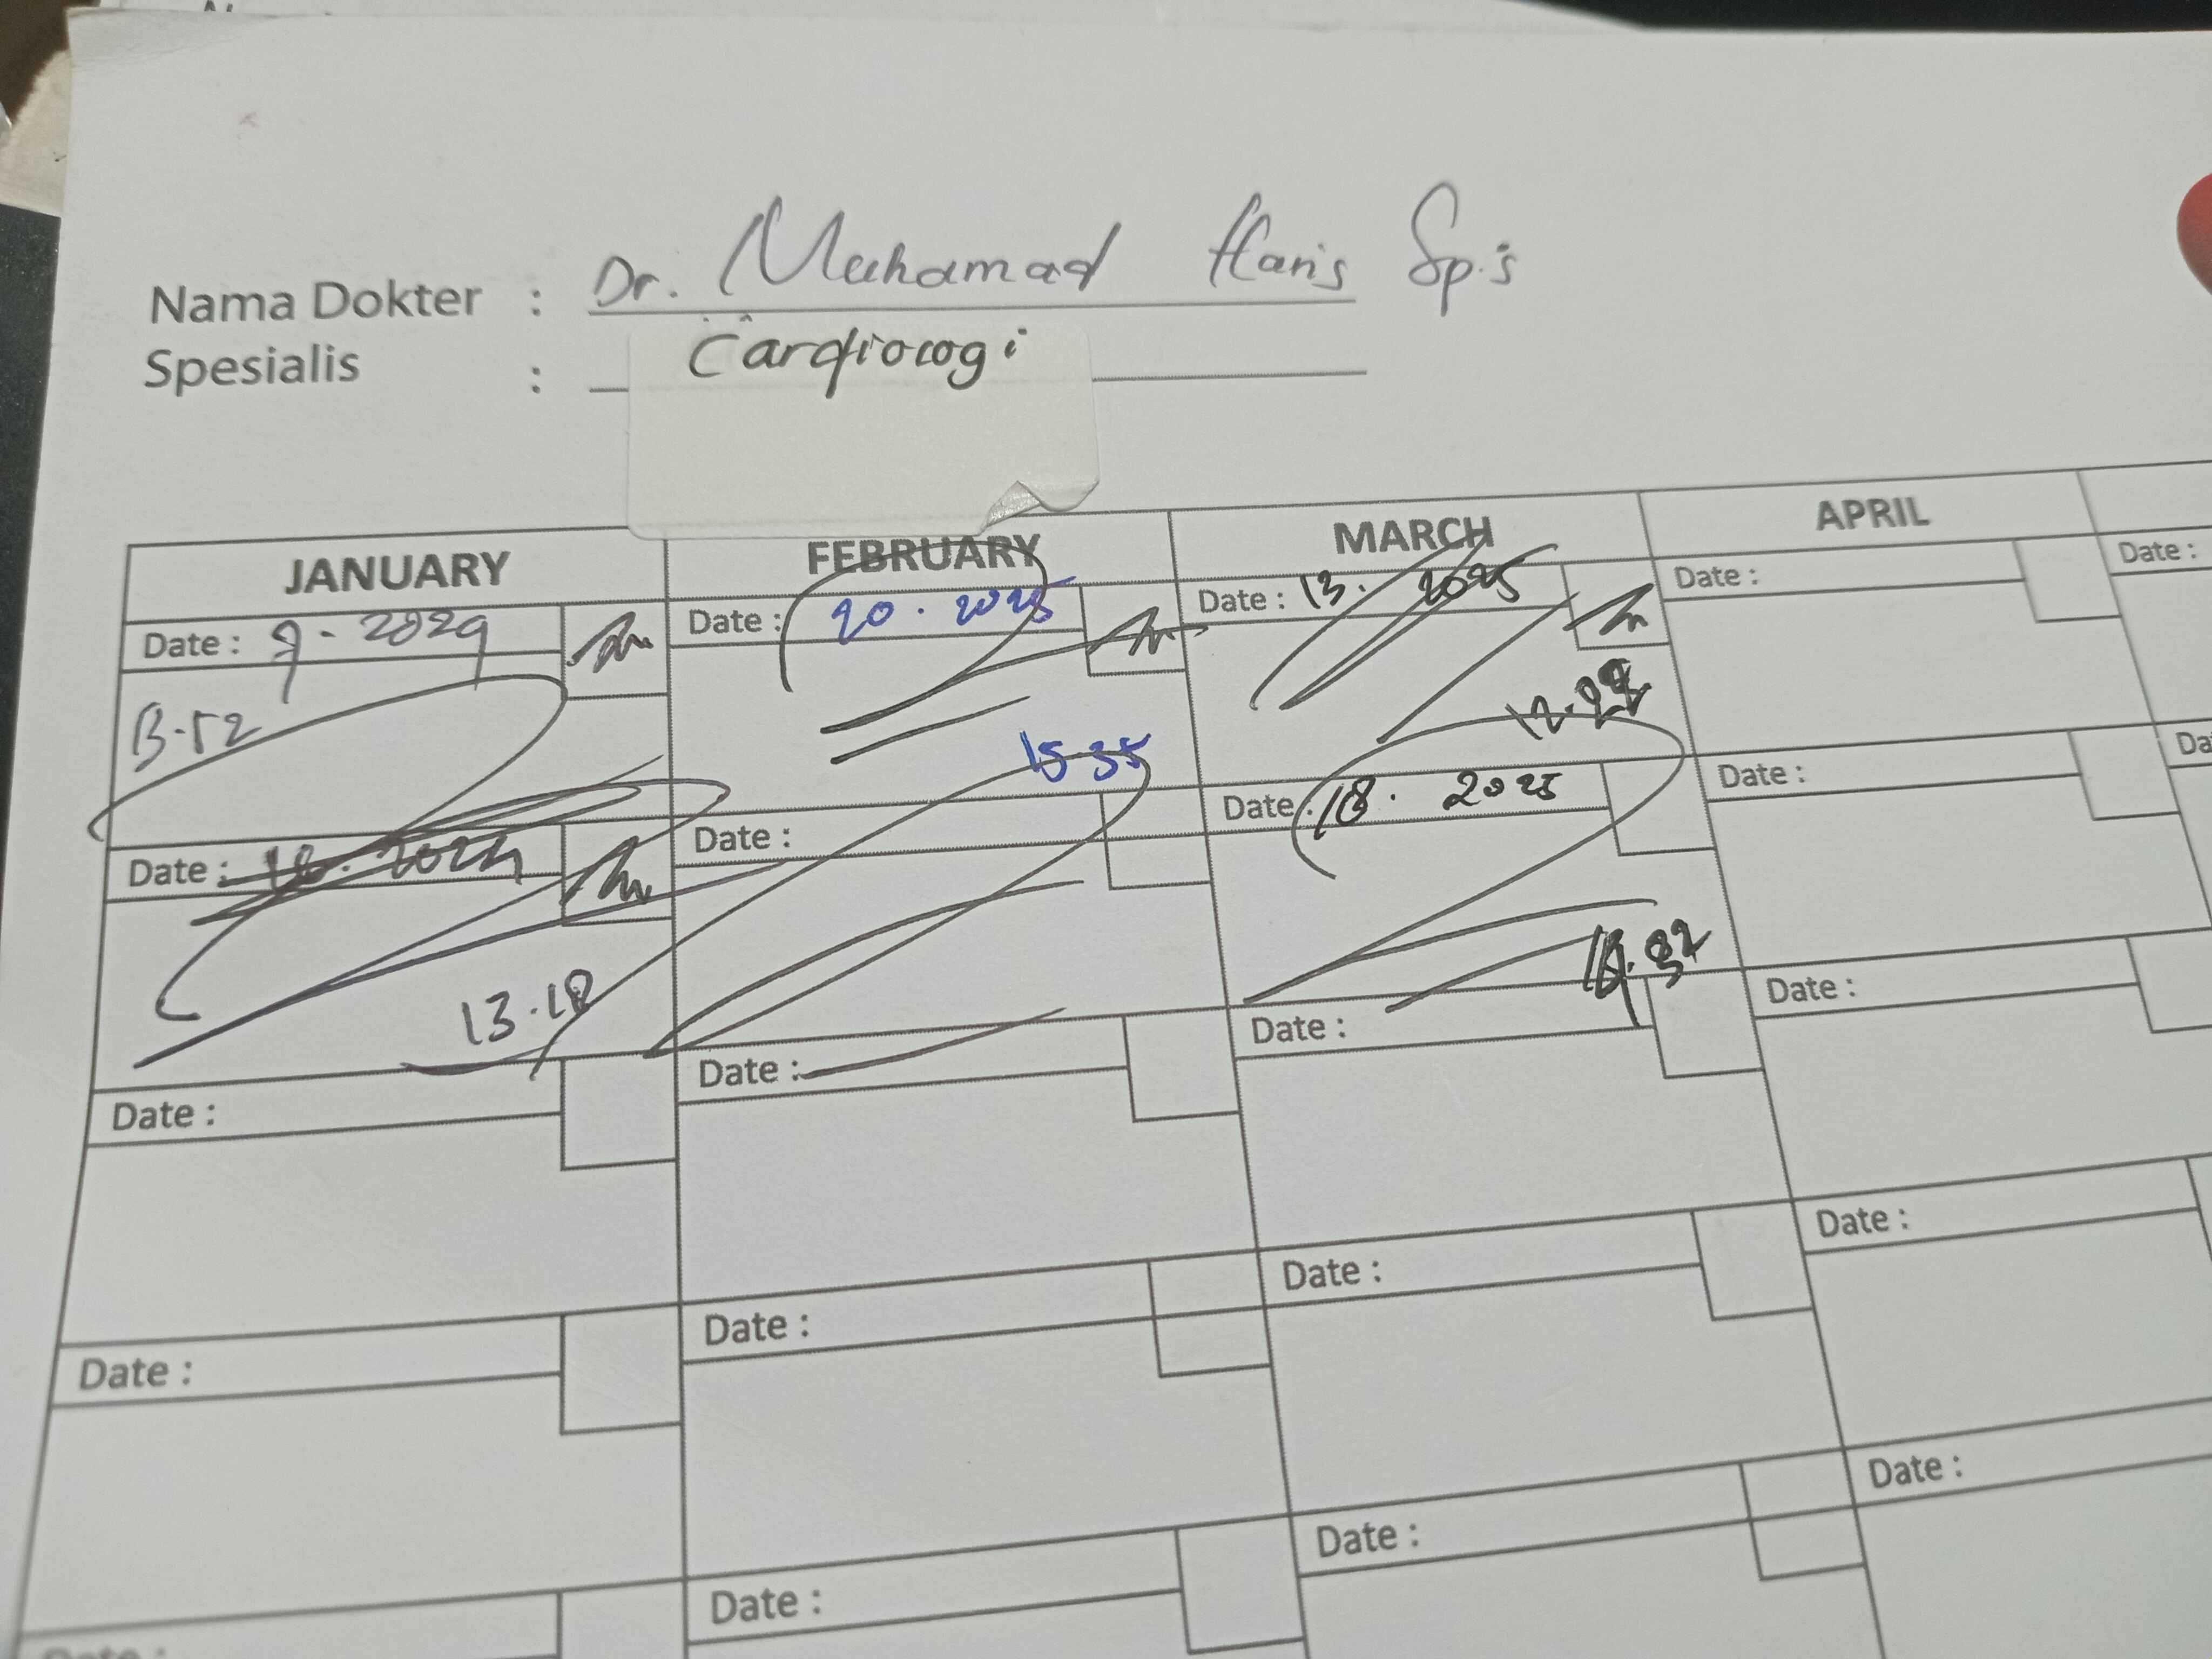 Nama Dokter : Dr. Muhamad Haris Sp.S
Spesialis : Cardiologi
JANUARY FEBRUARY MARCH APRIL
Date : 9 - 2029 Date : 20 . 2025 Date : 13 . 2025 Date : Date :
13-52 15-35
Date : Date : Date : 18 . 2025 Date :
13.18
Date : Date : Date : Date :
Date : Date : Date : Date :
Date : Date : Date : Date :